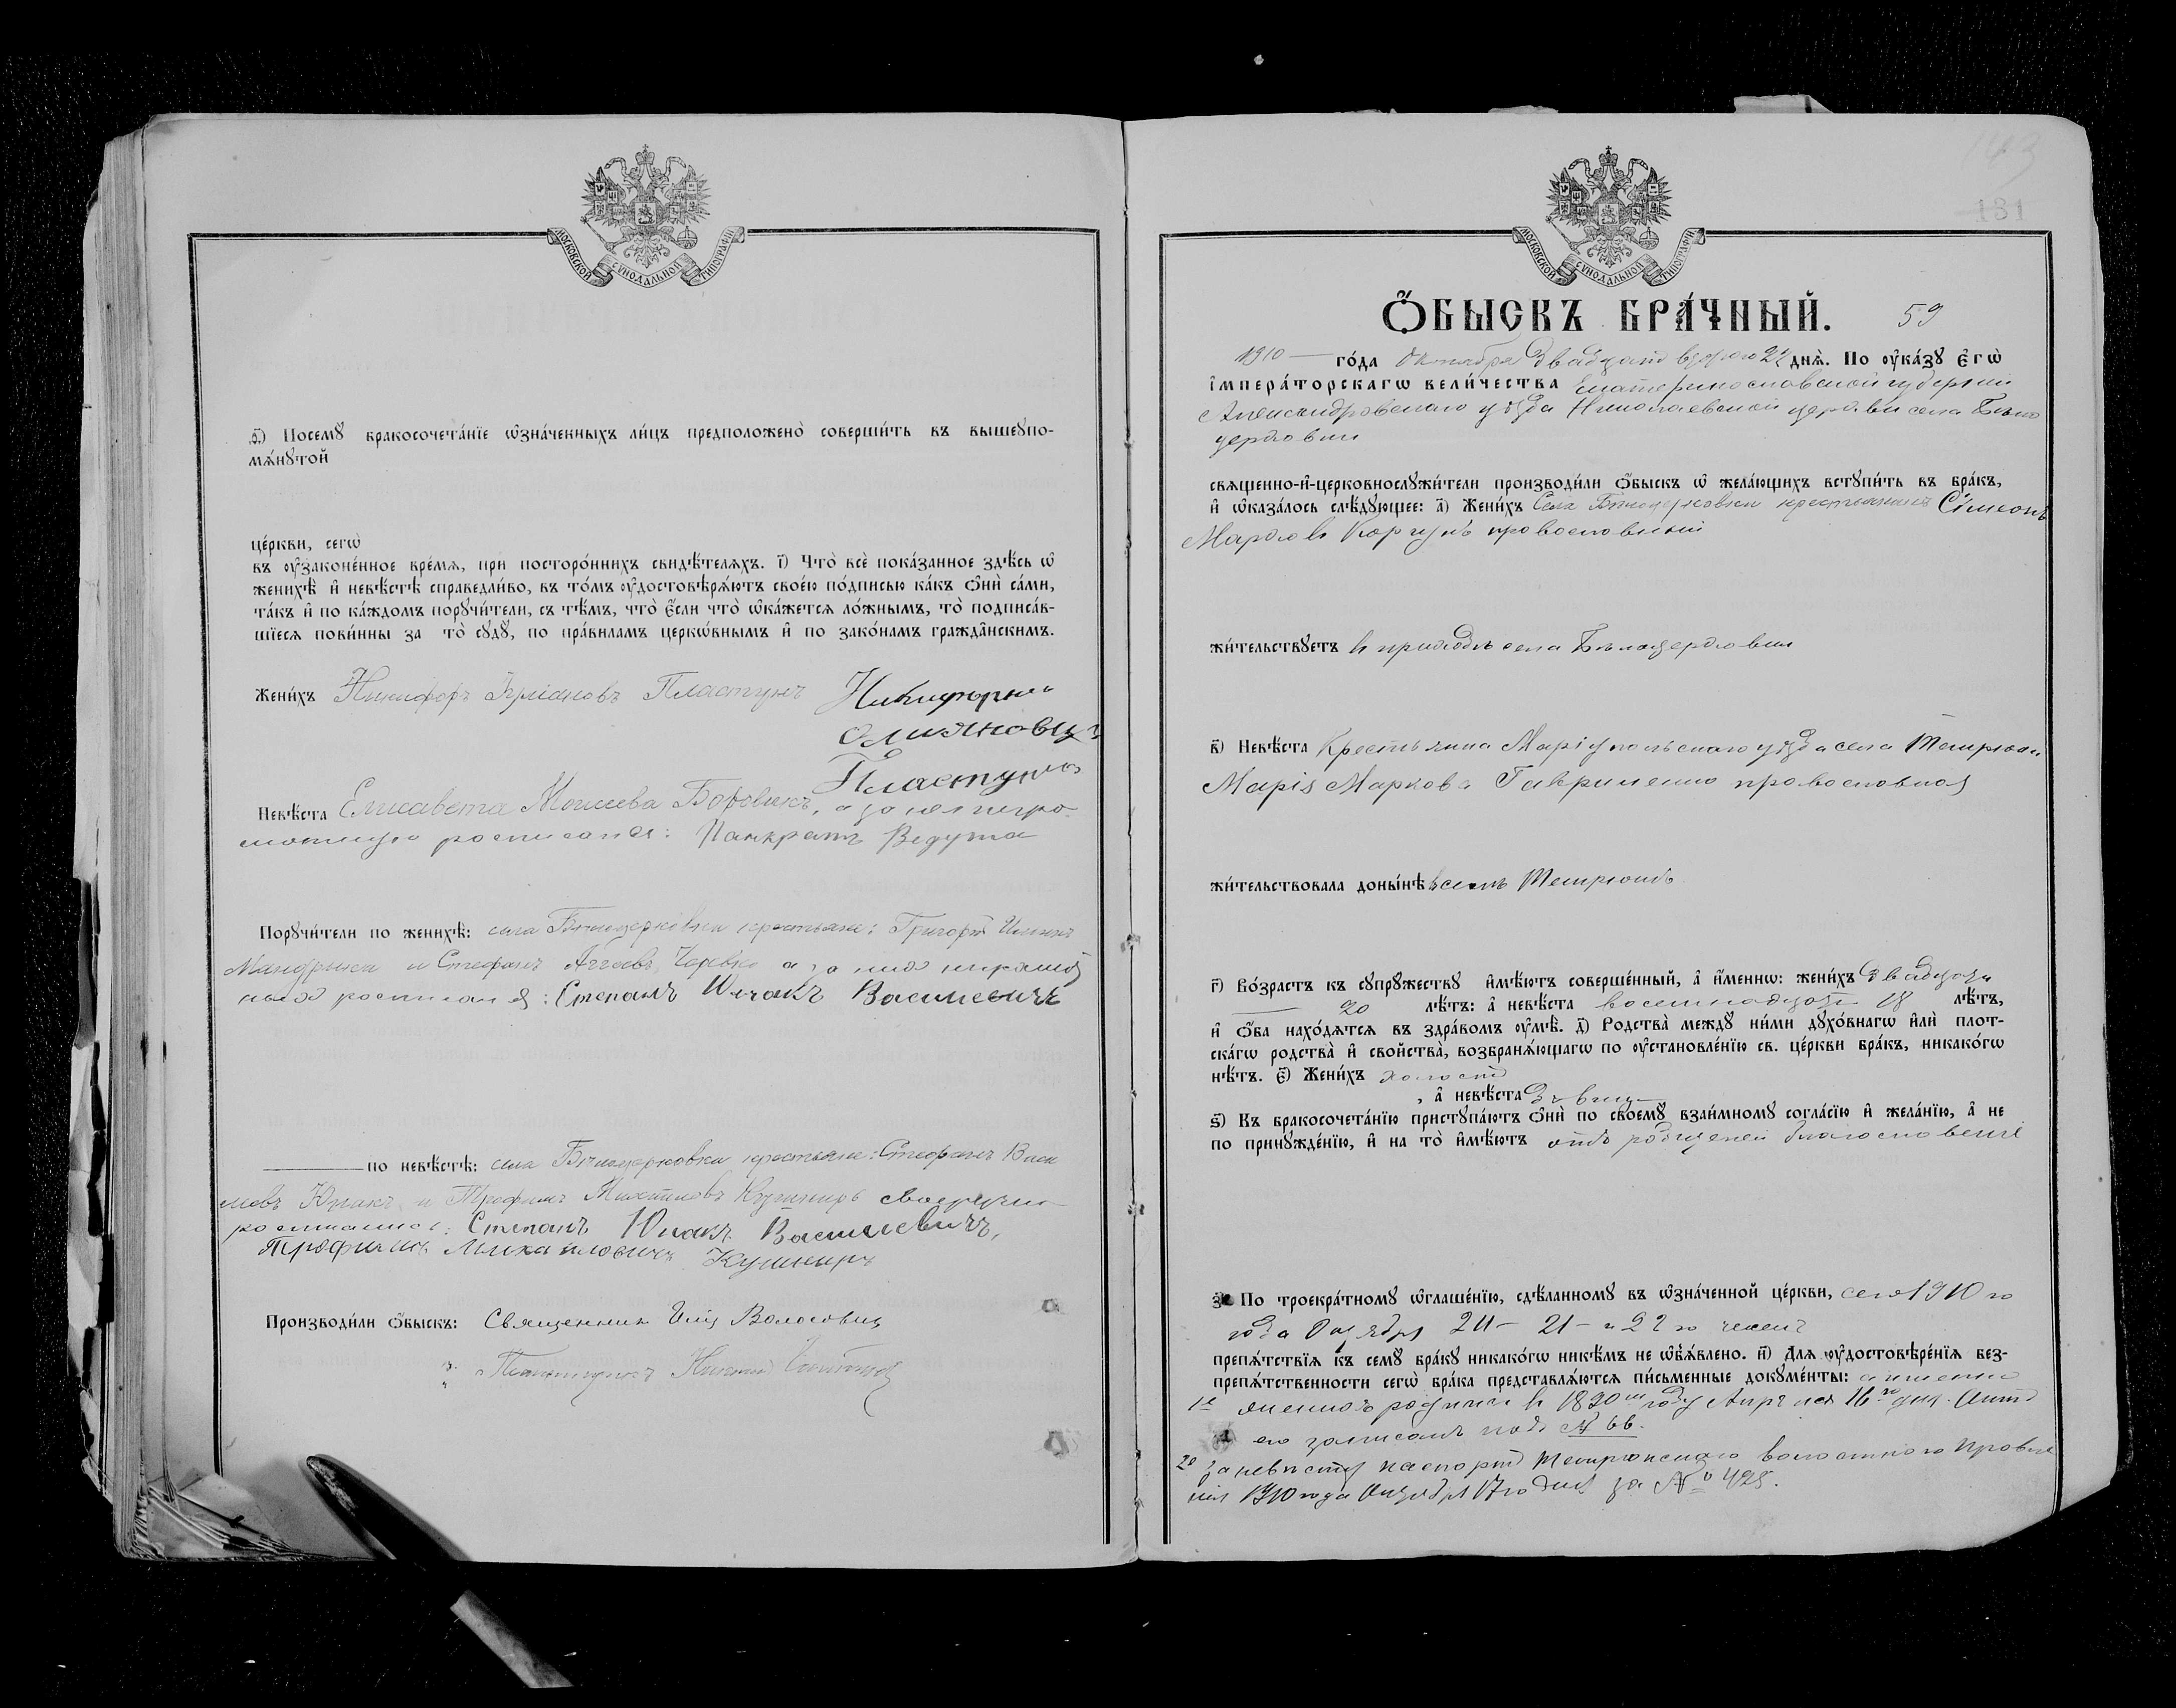 МОСКОВСКОЙ СѴНОДАЛЬНОЙ ТИПОГРАФІИ
ѳ҃) Посемꙋ бракосочета́нїе ѡ҆зна́ченныхъ ли́цъ предположено̀ соверши́ть въ вышеꙋпо-
мѧ́нꙋтой
це́ркви, сегѡ̀
въ ᲂу҆зако́ненное вре́мѧ, при посторо́ннихъ свидѣ́телѧхъ. і҃) Что̀ всѐ пока́занное здѣ́сь ѡ҆
женихѣ̀ и҆ невѣ́стѣ справедли́во, въ то́мъ ᲂу҆достовѣрѧ́ютъ свое́ю по́дписью ка́къ ѻ҆нѝ са́ми,
та́къ и҆ по ка́ждомъ порꙋчи́тели, съ тѣ́мъ, что̀ є҆́сли что̀ ѡ҆ка́жетсѧ ло́жнымъ, то̀ подписа́в-
шїесѧ пови́нны за то̀ сꙋдꙋ̀, по пра́виламъ церкѡ́внымъ и҆ по зако́намъ гражда̂нскимъ.
Жени́хъ Никифоръ Ерміановъ Пластунъ Никифоръ
Пластунъ
Невѣ́ста Елисавета Моисеева Боровикъ, а за нея негра-
мотную росписался: Панкратъ Ведута
Порꙋчи́тели по женихѣ̀: села Бѣлоцерковки крестьяне: Григорій
Мандрыка и Стефанъ Аггеевъ Черевко а за нихъ неграмот
ныхъ росписался: Степанъ Юнакъ Василевичъ
по невѣ́стѣ: села Бѣлоцерковки крестьяне: Стефанъ Васи
лiевъ Юнакъ и Трофимъ Михаиловъ Кушниръ своеручно
росписались: Степанъ Юнакъ Василевичъ,
Трофимъ Михайловичъ Кушниръ
Производи́ли ѻ҆́быскъ: Священникъ Илія Волосовичъ
Николай
МОСКОВСКОЙ СѴНОДАЛЬНОЙ ТИПОГРАФІИ
181
Ѻ҆́БЫСКЪ БРА́ЧНЫЙ. 59
1910 го́да Октября двадцать второго 22 днѧ̀. По ᲂу҆ка́зꙋ Є҆гѡ̀
І҆мпера́торскагѡ вели́чества Екатеринославской губерніи
Александровскаго уѣзда Николаевской церкви села Бѣло
церковки
свѧщенно-и҆-церковнослꙋжи́тели производи́ли ѻ҆́быскъ ѡ҆ жела́ющихъ встꙋпи́ть въ бра́къ,
и҆ ѡ҆каза́лось слѣ́дꙋющее: а҃) Жени́хъ Села Бѣлоцерковки крестьянинъ Сімеонъ
Марковъ Коргунъ православный
жи́тельствꙋетъ въ приходѣ села Бѣлоцерковки
в҃) Невѣ́ста Крестьянка Маріупольскаго уѣзда села Темрюка
Марія Маркова Гавриленко православная
жи́тельствовала доны́нѣ въ селѣ Темрюкѣ
г҃) Во́зрастъ къ сꙋпрꙋ́жествꙋ и҆мѣ́ютъ соверше́нный, а҆ и҆́меннѡ: жени́хъ двадцать
20 лѣ́тъ: а҆ невѣ́ста восемнадцать 18 лѣ́тъ,
и҆ ѻ҆́ба нахо́дѧтсѧ въ здра́вомъ ᲂу҆мѣ̀. д҃) Родства̀ междꙋ ни́ми дꙋхо́внагѡ и҆лѝ плот-
ска́гѡ родства̀ и҆ сво́йства, возбранѧ́ющагѡ по ᲂу҆становле́нїю св. це́ркви бра́къ, никако́гѡ
нѣ́тъ. є҃) Жени́хъ холостъ
, а҆ невѣ́ста дѣвица
ѕ҃) Къ бракосочета́нїю пристꙋпа́ютъ ѻ҆нѝ по своемꙋ̀ взаи́мномꙋ согла́сїю и҆ жела́нїю, а҆ не
по принꙋжде́нїю, и҆ на то̀ и҆мѣ́ютъ отъ родителей благословеніе
з҃) По троекра́тномꙋ ѡ҆глаше́нїю, сдѣ́ланномꙋ въ ѡ҆зна́ченной це́ркви, сего 1910 го
года Октября 20 – 21 – и 22 го чиселъ
препѧ́тствїѧ къ семꙋ̀ бра́кꙋ никако́гѡ никѣ́мъ не ѡ҆б̾ѧ́влено. и҃) Длѧ ᲂу҆достовѣре́нїѧ без-
препѧ́тственности сегѡ̀ бра́ка представлѧ́ютсѧ пи́сьменные докꙋме́нты: а именно
1е женихъ родился въ 1890 м году Апрѣля 16 го дня. Актъ
его записанъ подъ № 66.
2е за невѣсту паспортъ Темрюкскаго волостного правле
нія 1910 года Октября 17 го дня за № 425.